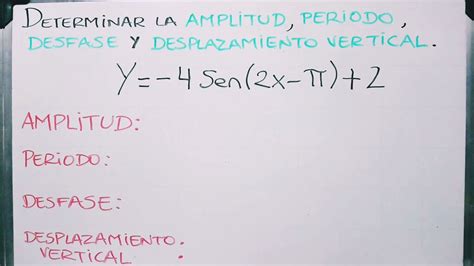 DETERMINAR LA AMPLITUD, PERIODO,
DESFASE Y DESPLAZAMIENTO VERTICAL.
Y=-4Sen(2x-π)+2
AMPLITUD:
PERIODO:
DESFASE:
DESPLAZAMIENTO
VERTICAL :